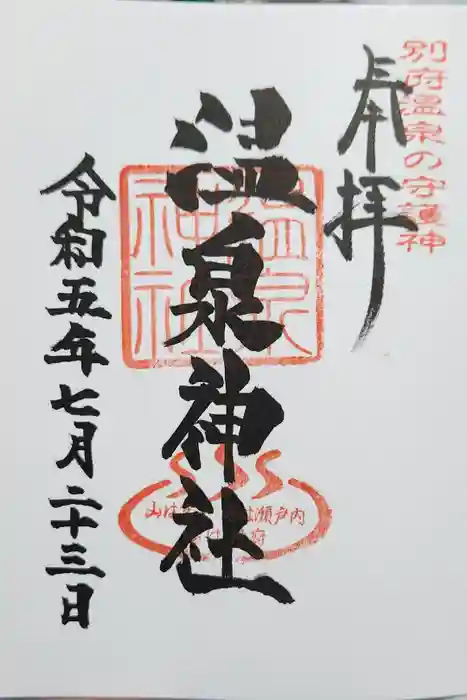 別府温泉の守護神
奉拝
温泉神社
温泉
神社
山は
瀬戸内
府
令和五年七月二十三日